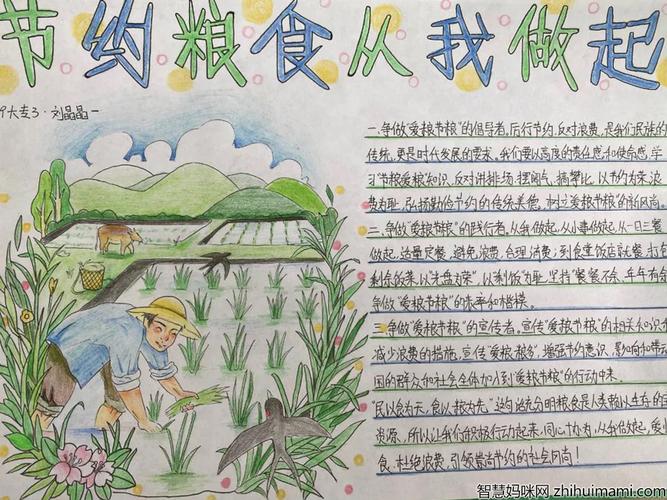 节约粮食从我做起
大专3·刘晶晶
一.争做"爱粮节粮"的倡导者,厉行节约,反对浪费,是我们民族的
传统,更是时代发展的要求,我们要以高度的责任感和使命感,学
习节粮爱粮知识,反对讲排场,摆阔气,搞攀比,以节约为荣,浪
费为耻,弘扬勤俭节约的传统美德,树立爱粮节粮的新风尚。
二.争做"爱粮节粮"的践行者,从我做起,从小事做起,从一日三餐
做起,适量定餐,避免浪费,合理消费;到食堂饭店就餐,打包
剩余饭菜,以"光盘为荣"以剩饭为耻,坚持"餐餐不余,年年有余
争做"爱粮节粮"的先军和楷模。
三.争做"爱粮节粮"的宣传者,宣传"爱粮节粮"的相关知识和
减少浪费的措施,宣传"爱粮,粮",增强节约意识,影响和带动
围的群众和社会全体加入到"爱粮节粮"的行动中来。
"民以食为天,食以粮为先。"这句话充分明粮食是人类赖以生存的
资源,所以让我们积极行动起来,同心协力,从我做起,爱
食,杜绝浪费,引领勤节约的社会风尚!
智慧妈咪网 zhihuimami.com